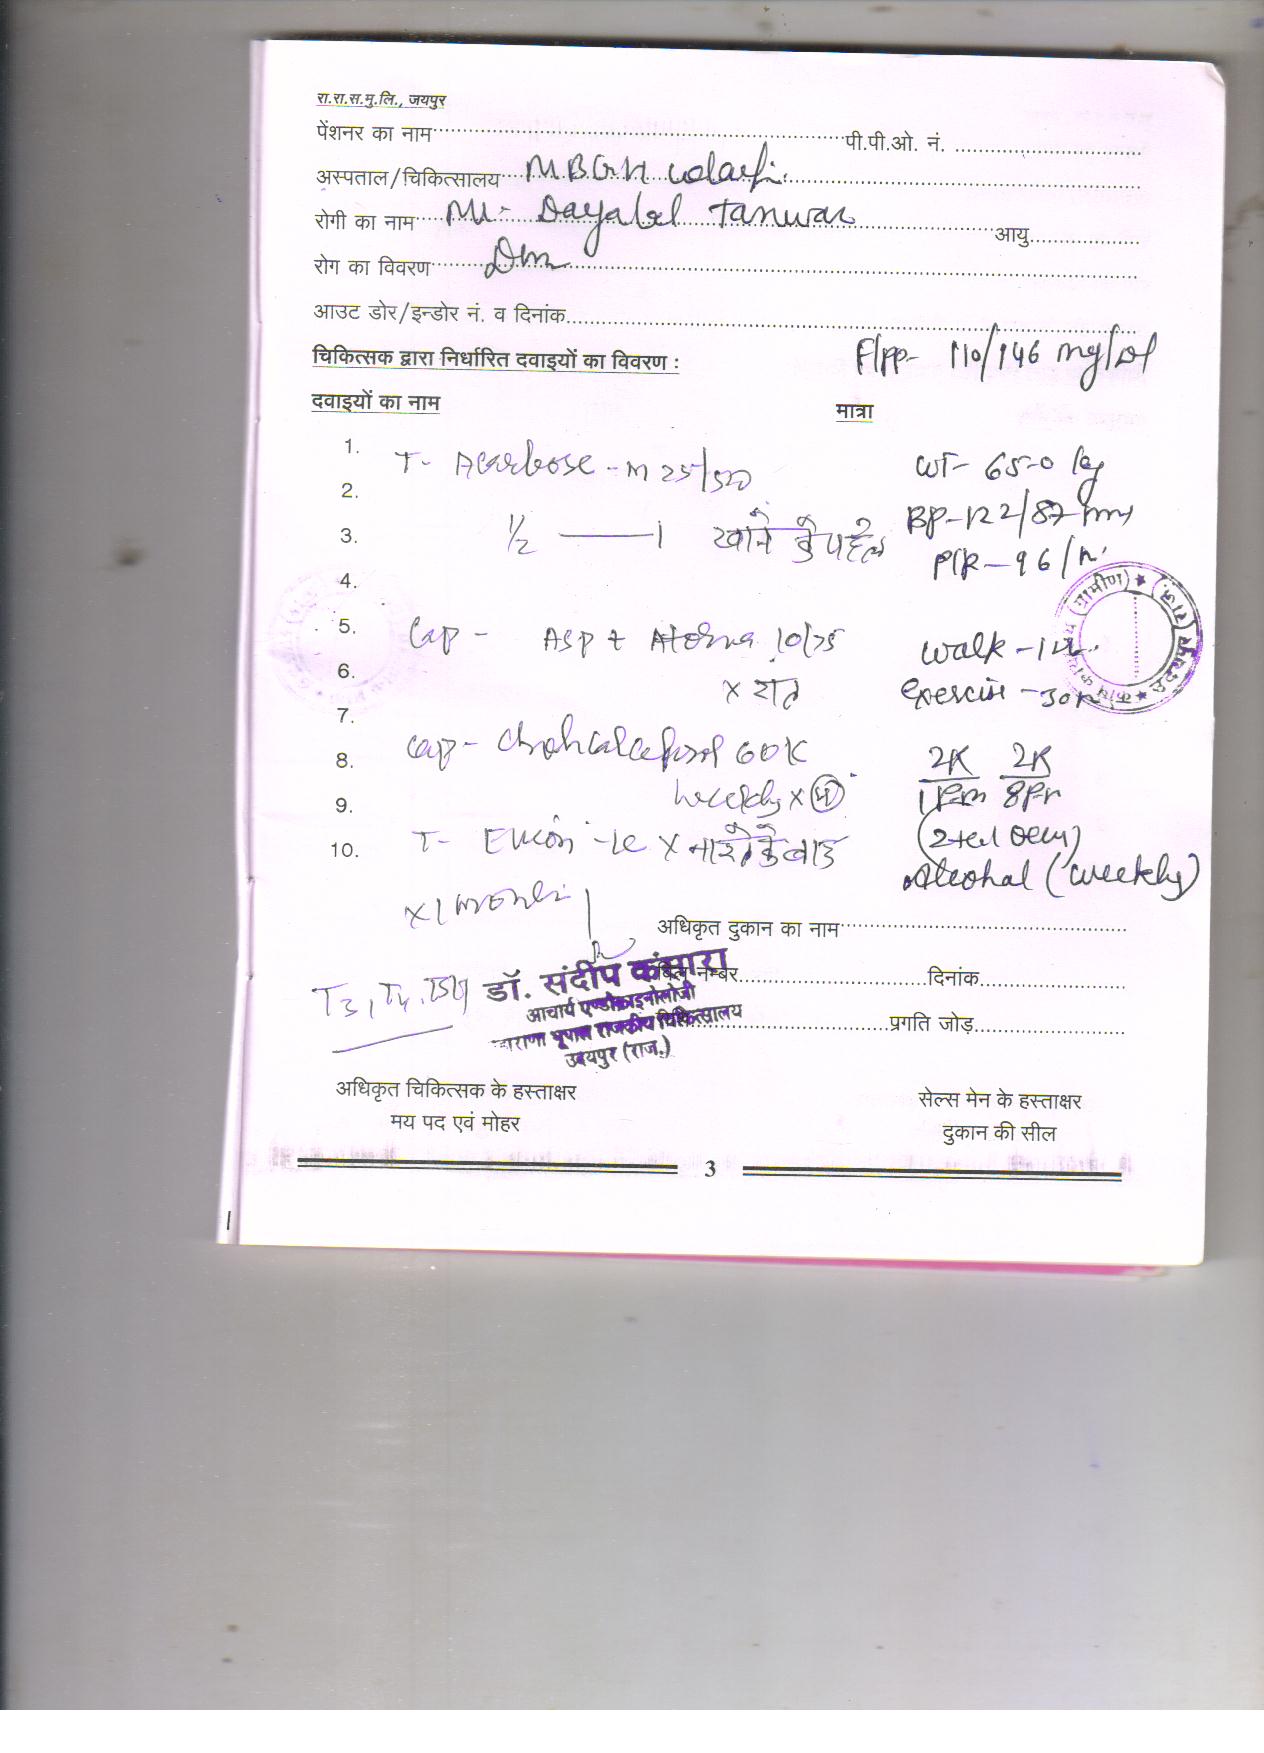 रा.रा.स.मु.लि., जयपुर
पेंशनर का नाम पी.पी.ओ. नं.
अस्पताल/चिकित्सालय M.B.G.H
रोगी का नाम Mr- Dayalal Tanwar आयु
रोग का विवरण Dm
आउट डोर/इन्डोर नं. व दिनांक
चिकित्सक द्वारा निर्धारित दवाइयों का विवरण :
F/PP- 110/146 mg/dl
दवाइयों का नाम मात्रा
1. T- Acarbose - M 25/500 WT- 65-0 kg
2.
BP-122/87
3. 1/2 — 1 खाने के पहले
4. P/R - 96/
5. Cap - ASP + Atorva 10/75 walk -
6. x रात exercise -
7.
8. Cap - 60K 2R 2R
weekly x 1pm 8pm
9.
10. T- x नाश्ते के बाद
Alcohal (weekly)
x 1 month
अधिकृत दुकान का नाम
T3, T4, TSH डॉ. संदीप कंसारा
नम्बर दिनांक
आचार्य एण्डोक्राइनोलोजी
भूपाल राजकीय चिकित्सालय
प्रगति जोड़
उदयपुर (राज.)
अधिकृत चिकित्सक के हस्ताक्षर सेल्स मेन के हस्ताक्षर
मय पद एवं मोहर दुकान की सील
3